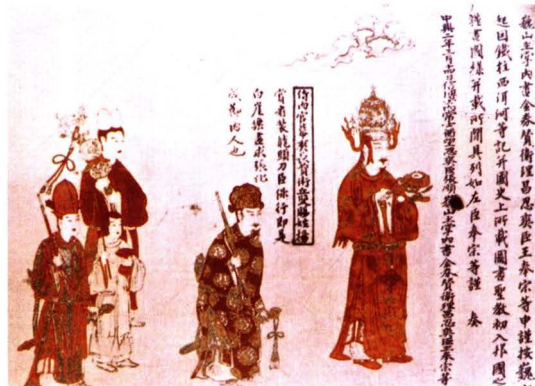 巍山主掌內書金券贊衛理昌忍爽臣王奉宗等申謹按巍
起因鐵柱西洱河等記并國史上所載圖書聖教初入邦國之
謹畫圖樣并載所聞具列如左臣奉宗等謹 奏
中興二年三月十四日信博士內常士酋望忍爽臣張順巍山主掌內書金券贊衛理昌忍爽臣王奉宗等
內官
官着裝龍頭刀臣保行即是
白崖樂盡求張化
成節內人也